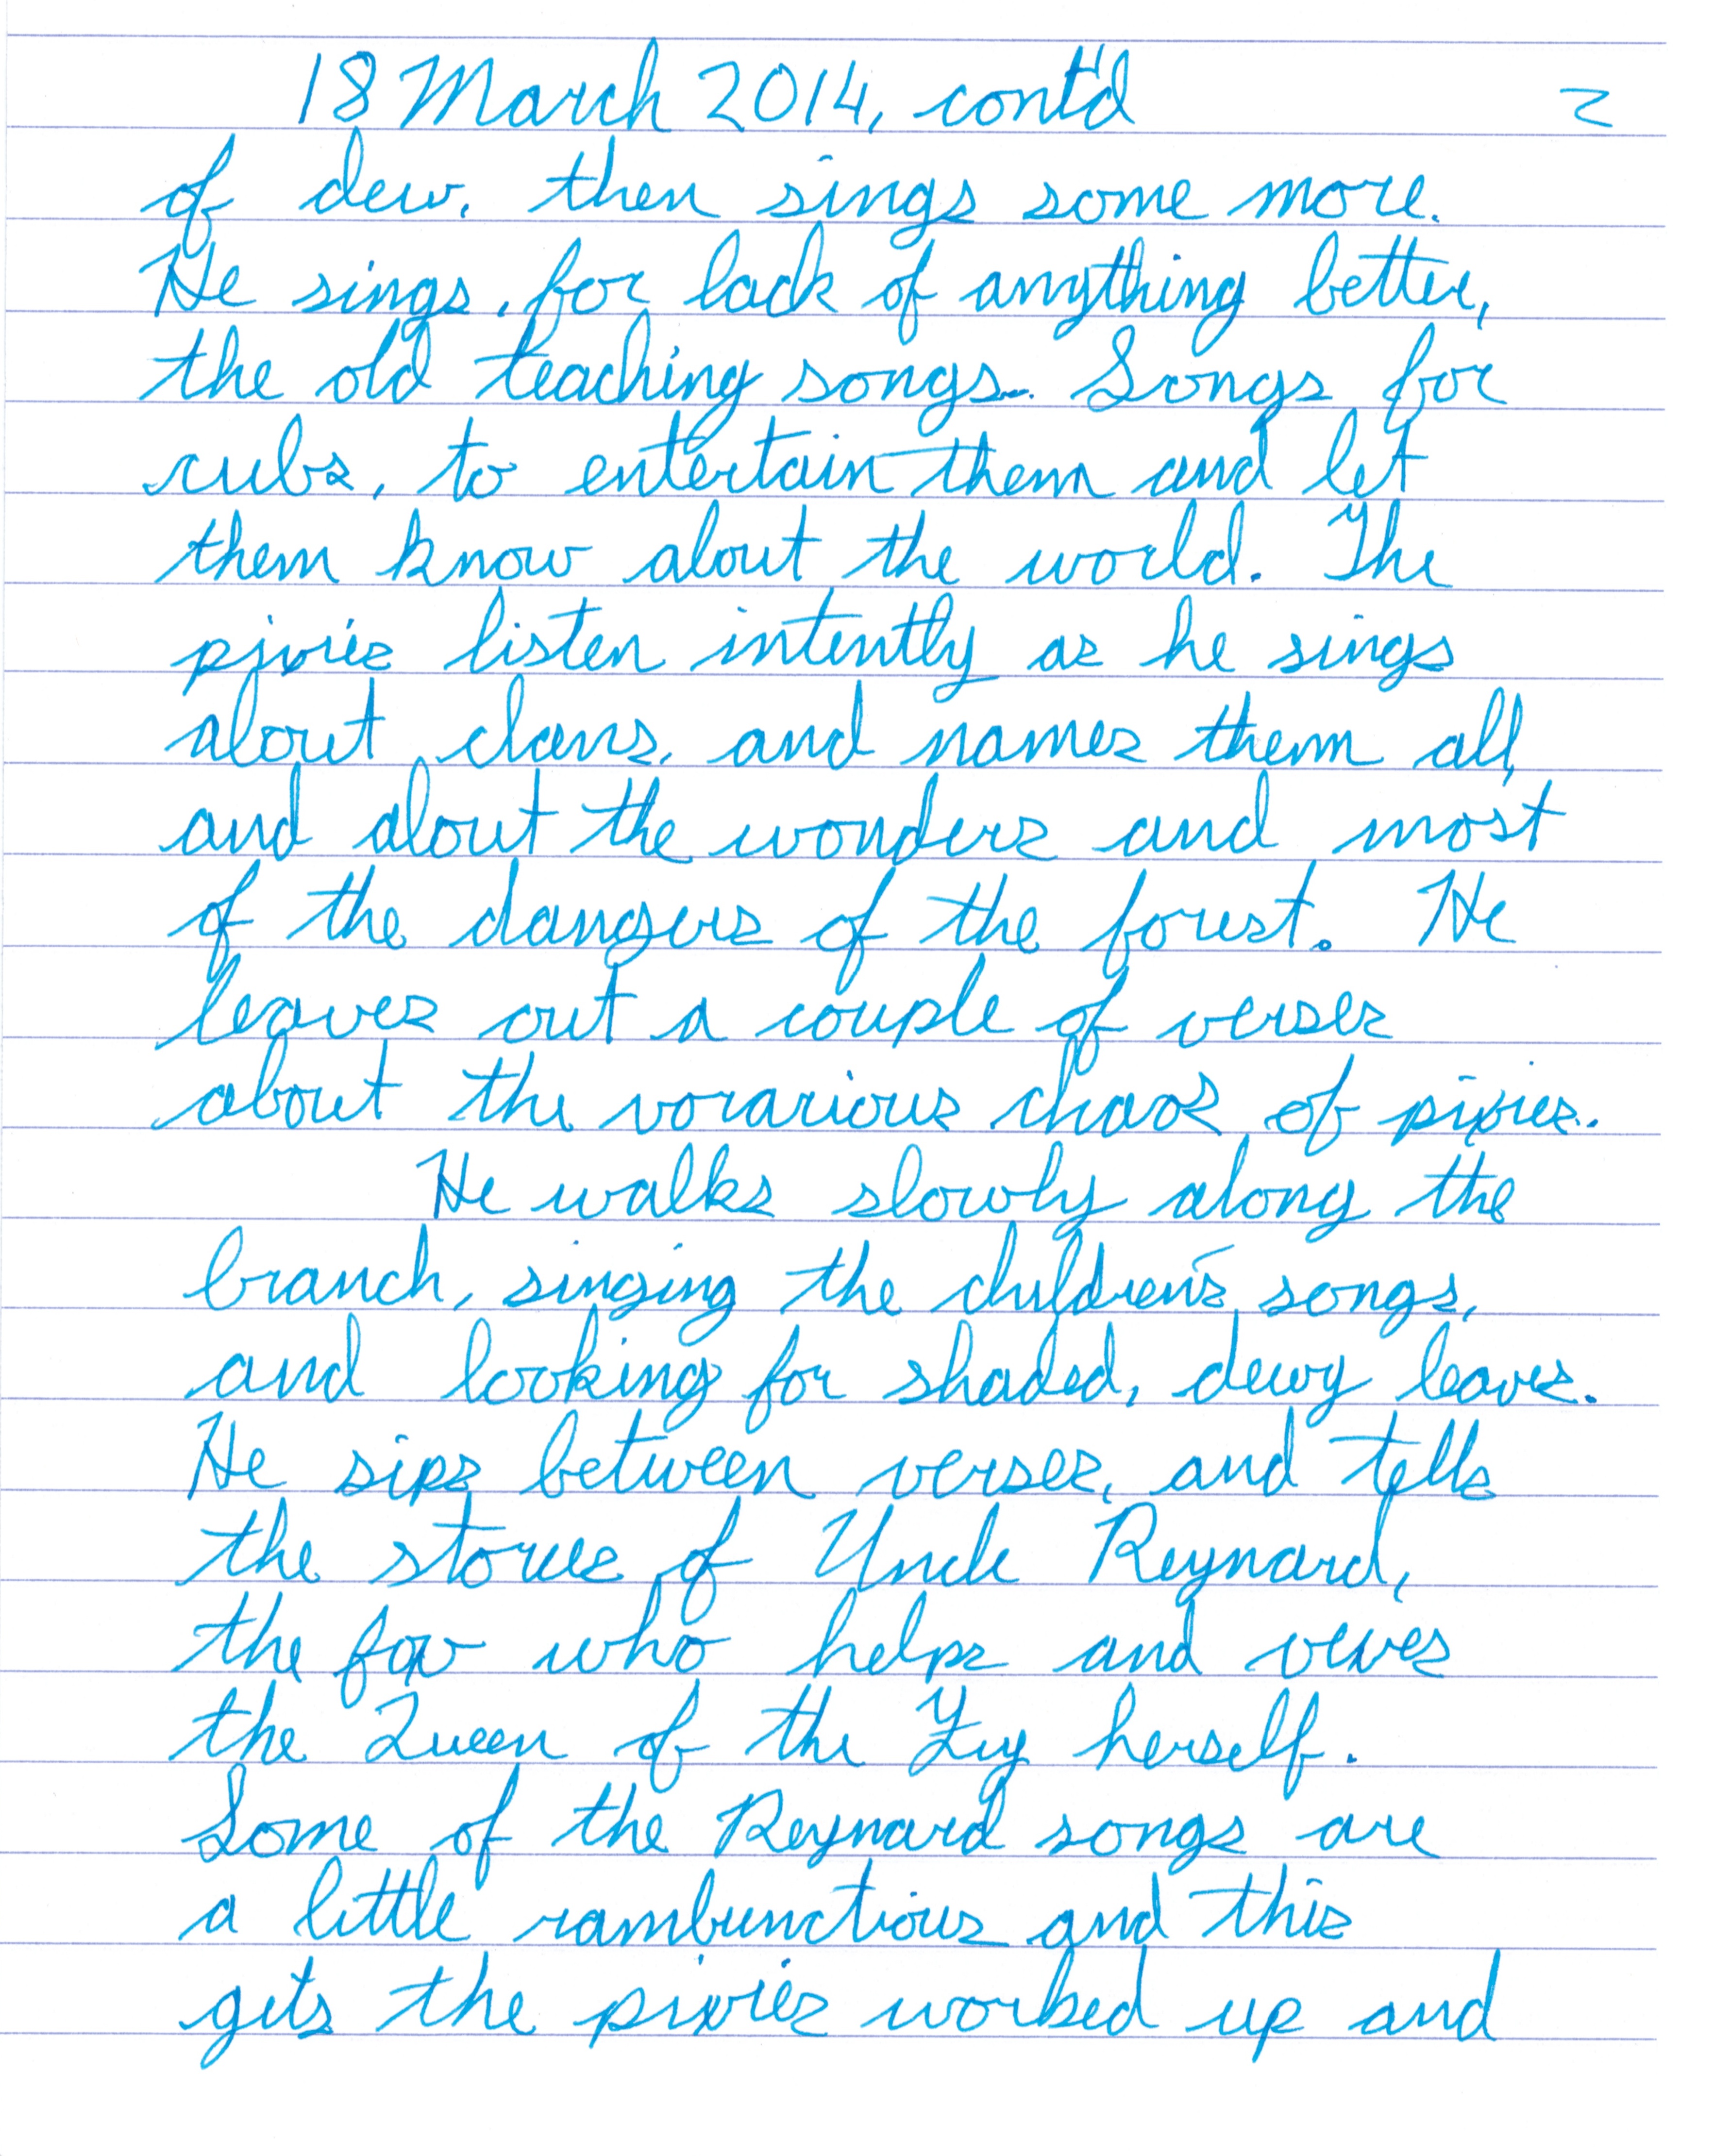 18 March 2014, cont'd 2
of dew, then sings some more.
He sings, for lack of anything better,
the old teaching songs. Songs for
cubs, to entertain them and let
them know about the world. The
pixies listen intently as he sings
about clans, and names them all,
and about the wonders and most
of the dangers of the forest. He
leaves out a couple of verses
about the voracious chaos of pixies.
He walks slowly along the
branch, singing the children's songs,
and looking for shaded, dewy leaves.
He sips between verses, and tells
the stories of Uncle Reynard,
the fox who helps and vexes
the Queen of the herself.
Some of the Reynard songs are
a little rambunctious and this
gets the pixies worked up and